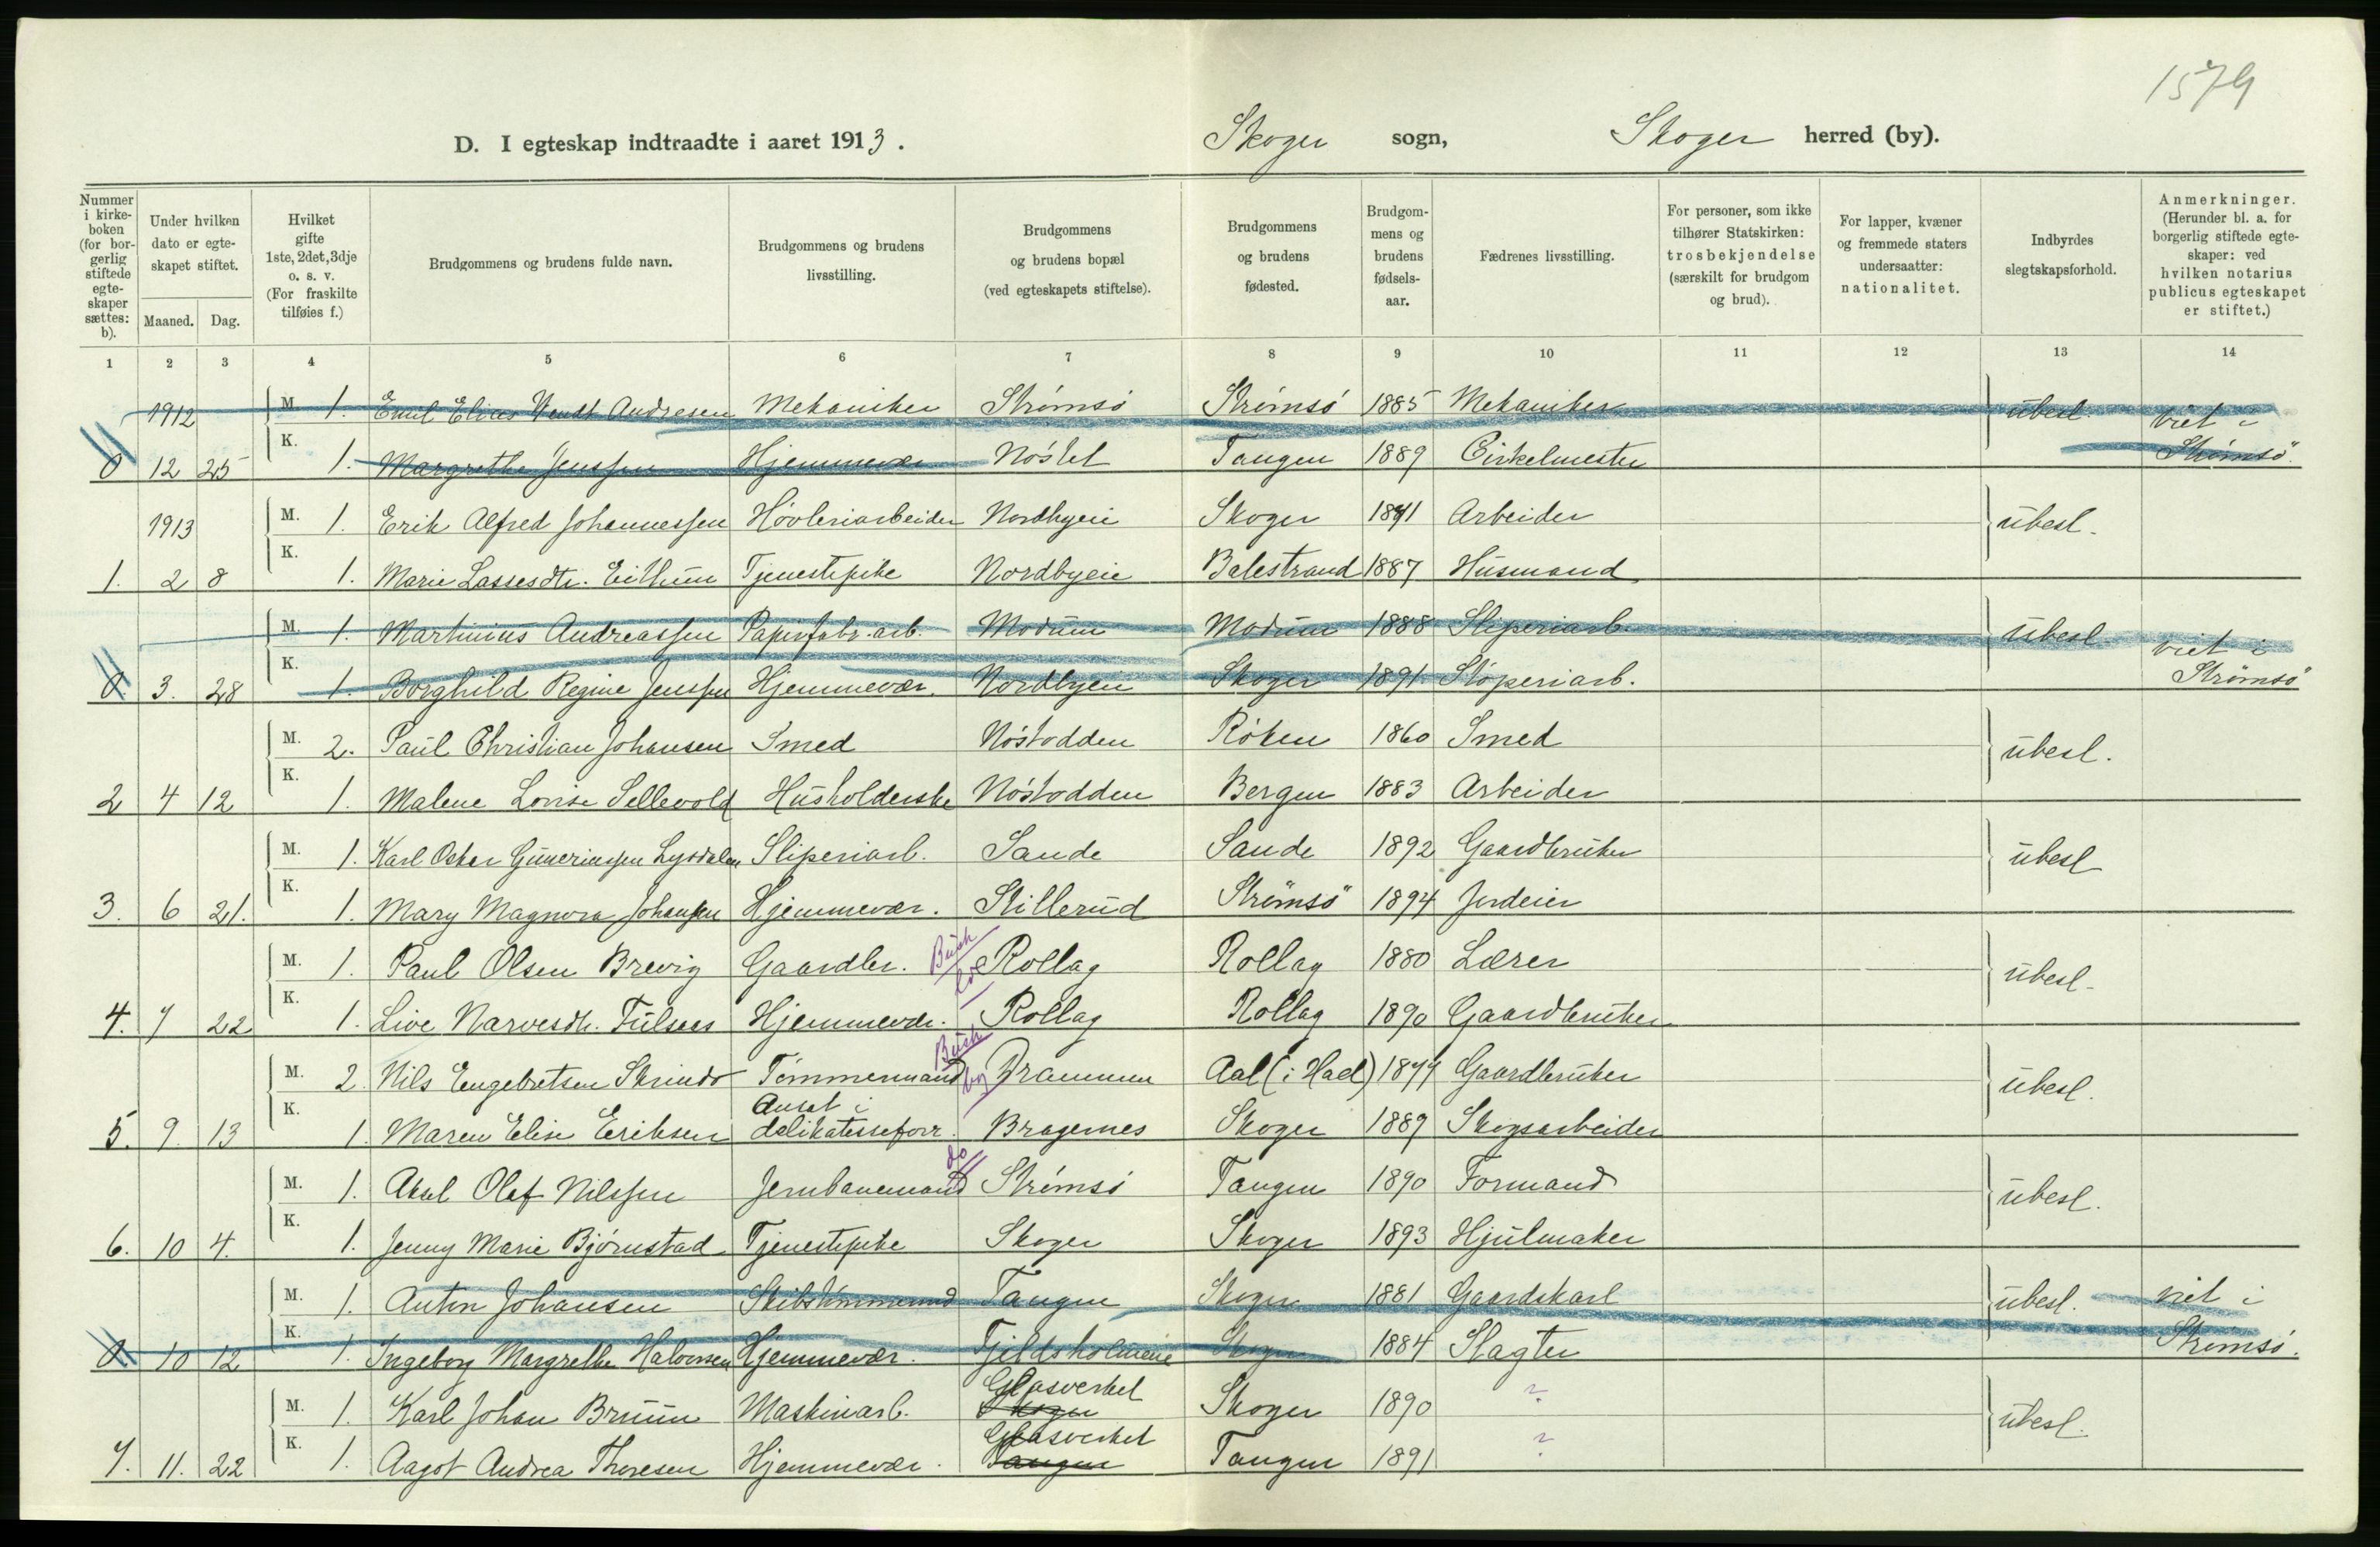 1579
D. I egteskap indtraadte i aaret 1913. Skoger sogn, Skoger herred (by).
Nummer i kirkeboken (for borgerlig stiftede egteskaper sættes: b). Under hvilken dato er egteskapet stiftet. Maaned. Dag. Hvilket gifte 1ste, 2det, 3dje o. s. v. (For fraskilte tilføies f.) Brudgommens og brudens fulde navn. Brudgommens og brudens livsstilling. Brudgommens og brudens bopæl (ved egteskapets stiftelse). Brudgommens og brudens fødested. Brudgommens og brudens fødselsaar. Fædrenes livsstilling. For personer, som ikke tilhører Statskirken: trosbekjendelse (særskilt for brudgom og brud). For lapper, kvæner og fremmede staters undersaatter: nationalitet. Indbyrdes slegtskapsforhold. Anmerkninger. (Herunder bl. a. for borgerlig stiftede egteskaper: ved hvilken notarius publicus egteskapet er stiftet.)
1 2 3 4 5 6 7 8 9 10 11 12 13 14
1912 M. 1. Emil Elias Wendt Andresen Mekaniker Strømsø Strømsø 1885 Mekaniker ubesl. viet i
0 12 25 K. 1. Margrethe Jenssen Hjemmevær. Nøstet Tangen 1889 Cirkelmester Strømsö.
1913 M. 1. Erik Alfred Johannessen Høvleriarbeider Nordbyeie Skoger 1891 Arbeider ubesl.
1. 2 8 K. 1. Marie Lassesdtr. Eithun Tjenestepike Nordbyeie Balestrand 1887 Husmand
M. 1. Martinius Andreassen Papirfabr.arb. Modum Modum 1888 Sliperiarb. ubesl. viet i
0. 3. 28 K. 1. Borghild Regine Jenssen Hjemmevær. Nordbyen Skoger 1891 Støperiarb. Strømsö
M. 2. Paul Christian Johansen Smed Nøstodden Røken 1860 Smed ubesl.
2 4 12 K. 1. Malene Lovise Sellevold Husholderske Nøstodden Bergen 1883 Arbeider
M. 1. Karl Oskar Guneriussen Lysdalen Sliperiarb. Sande Sande 1892 Gaardbruker ubesl
3. 6 21. K. 1. Mary Magnora Johansen Hjemmevær. Skillerud Strømsö 1894 Jordeier
M. 1. Paul Olsen Brevig Gaardbr. Busk Rollag Rollag 1880 Lærer ubesl.
4. 7 22 K. 1. Live Narvesdtr. Tulsaas Hjemmevær. Rollag Rollag 1890 Gaardbruker
M. 2. Nils Engebretsen Skrindo Tømmermand Busk by Drammen Aal (i Hall) 1877 Gaardbruker ubesl.
5. 9. 13 K. 1. Maren Elise Eriksen Ansat i delikatesseforr. Bragernes Skoger 1889 Skogsarbeider
M. 1. Aksel Olaf Nilssen Jernbanemand do Strømsø Tangen 1890 Formand ubesl.
6. 10 4. K. 1. Jenny Marie Bjørnstad Tjenestepike Skoger Skoger 1893 Hjulmaker
M. 1. Anton Johansen Skibstømmermand Tangen Skoger 1881 Gaardskarl ubesl. viet i
0 10 12 K. 1. Ingeborg Margrethe Halvorsen Hjemmevær. Fjeldsholmene Skoger 1884 Slagter Strømsø.
M. 1. Karl Johan Bruun Maskinarb. Glasverket Skoger Skoger 1890 ? ubesl.
7. 11. 22 K. 1. Aagot Andrea Thoresen Hjemmevær. Glasverket Tangen Tangen 1891 ?